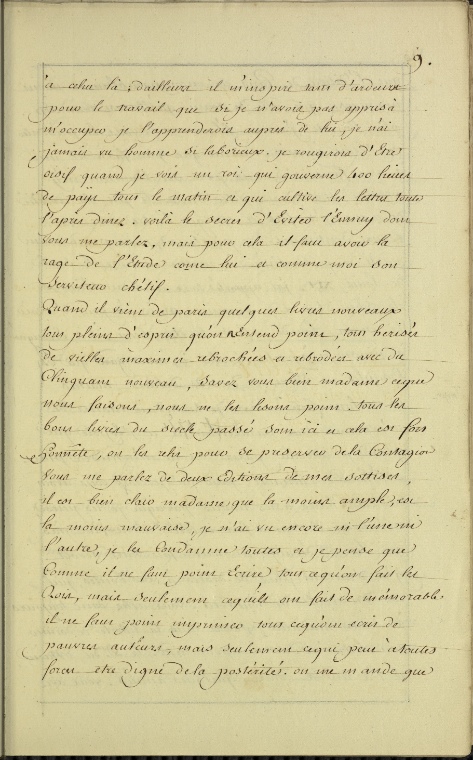 9.
a celui là, d'ailleurs il m'inspire tant d'ardeur
pour le travail que si je n'avois pas appris à
m'occuper je l'apprenderois auprès de lui, je n'ai
jamais vu homme si laborieux. je rougirois d'Etre
oisif quand je vois un roi qui gouverne 400 lieues
de païs tout le matin et qui cultive les lettres toute
l'apres dinez. voilà le secret d'Eviter l'Ennuy dont
vous me parlez, mais pour cela il faut avoir la
rage de l'Etude come lui et comme moi son
serviteur chétif.
Quand il vient de paris quelques livres nouveaux
tous pleins d'esprit qu'on n'Entend point, tous herisés
de vielles maximes rebrochées et rebrodées avec du
Clinquant nouveau, savez vous bien madame ceque
nous faisons, nous ne les lisons point. tous les
bons livres du siecle passé sont ici et cela est fort
honnête, on les relit pour se preserver de la Contagion
vous me parlez de deux Editions de mes sottises,
il est bien clair madame que la moins ample est
la moins mauvaise, je n'ai vu encore ni l'une ni
l'autre, je les Condamne toutes et je pense que
Comme il ne faut point Ecrire tout cequ'on fait les
Rois, mais seulement cequ'ils ont fait de mémorable.
il ne faut point imprimer tout cequ'ont ecrit de
pauvres auteurs, mais seulement cequi peut à toute
force etre digne de la postérité. on me mande que